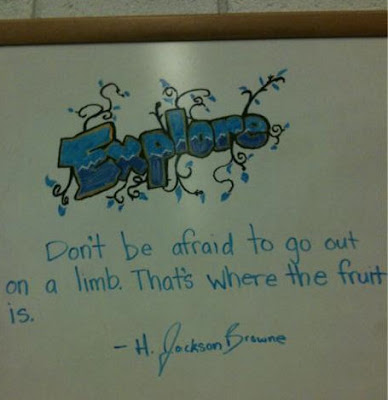 Explore
Don't be afraid to go out
on a limb. That's where the fruit
is.
- H. Jackson Browne